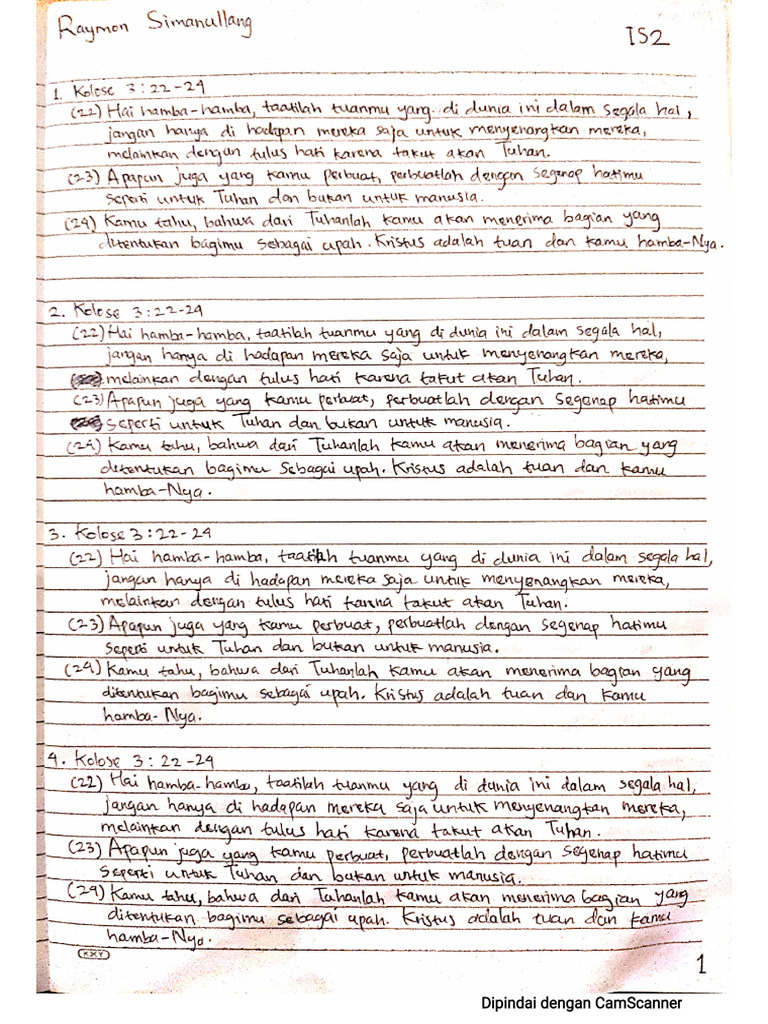 Raymon Simanullang
IS2
1. Kolose 3:22-24
(22) Hai hamba-hamba, taatilah tuanmu yang di dunia ini dalam segala hal,
jangan hanya di hadapan mereka saja untuk menyenangkan mereka,
melainkan dengan tulus hati karena takut akan Tuhan.
(23) Apapun juga yang kamu perbuat, perbuatlah dengan segenap hatimu
seperti untuk Tuhan dan bukan untuk manusia.
(24) Kamu tahu, bahwa dari Tuhanlah kamu akan menerima bagian yang
ditentukan bagimu sebagai upah. Kristus adalah tuan dan kamu hamba-Nya.
2. Kolose 3:22-24
(22) Hai hamba-hamba, taatilah tuanmu yang di dunia ini dalam segala hal,
jangan hanya di hadapan mereka saja untuk menyenangkan mereka,
melainkan dengan tulus hati karena takut akan Tuhan.
(23) Apapun juga yang kamu perbuat, perbuatlah dengan segenap hatimu
seperti untuk Tuhan dan bukan untuk manusia.
(24) Kamu tahu, bahwa dari Tuhanlah kamu akan menerima bagian yang
ditentukan bagimu sebagai upah. Kristus adalah tuan dan kamu
hamba-Nya.
3. Kolose 3:22-24
(22) Hai hamba-hamba, taatilah tuanmu yang di dunia ini dalam segala hal,
jangan hanya di hadapan mereka saja untuk menyenangkan mereka,
melainkan dengan tulus hati karena takut akan Tuhan.
(23) Apapun juga yang kamu perbuat, perbuatlah dengan segenap hatimu
seperti untuk Tuhan dan bukan untuk manusia.
(24) Kamu tahu, bahwa dari Tuhanlah kamu akan menerima bagian yang
ditentukan bagimu sebagai upah. Kristus adalah tuan dan kamu
hamba-Nya.
4. Kolose 3:22-24
(22) Hai hamba-hamba, taatilah tuanmu yang di dunia ini dalam segala hal,
jangan hanya di hadapan mereka saja untuk menyenangkan mereka,
melainkan dengan tulus hati karena takut akan Tuhan.
(23) Apapun juga yang kamu perbuat, perbuatlah dengan segenap hatimu
seperti untuk Tuhan dan bukan untuk manusia.
(24) Kamu tahu, bahwa dari Tuhanlah kamu akan menerima bagian yang
ditentukan bagimu sebagai upah. Kristus adalah tuan dan kamu
hamba-Nya.
1
Dipindai dengan CamScanner